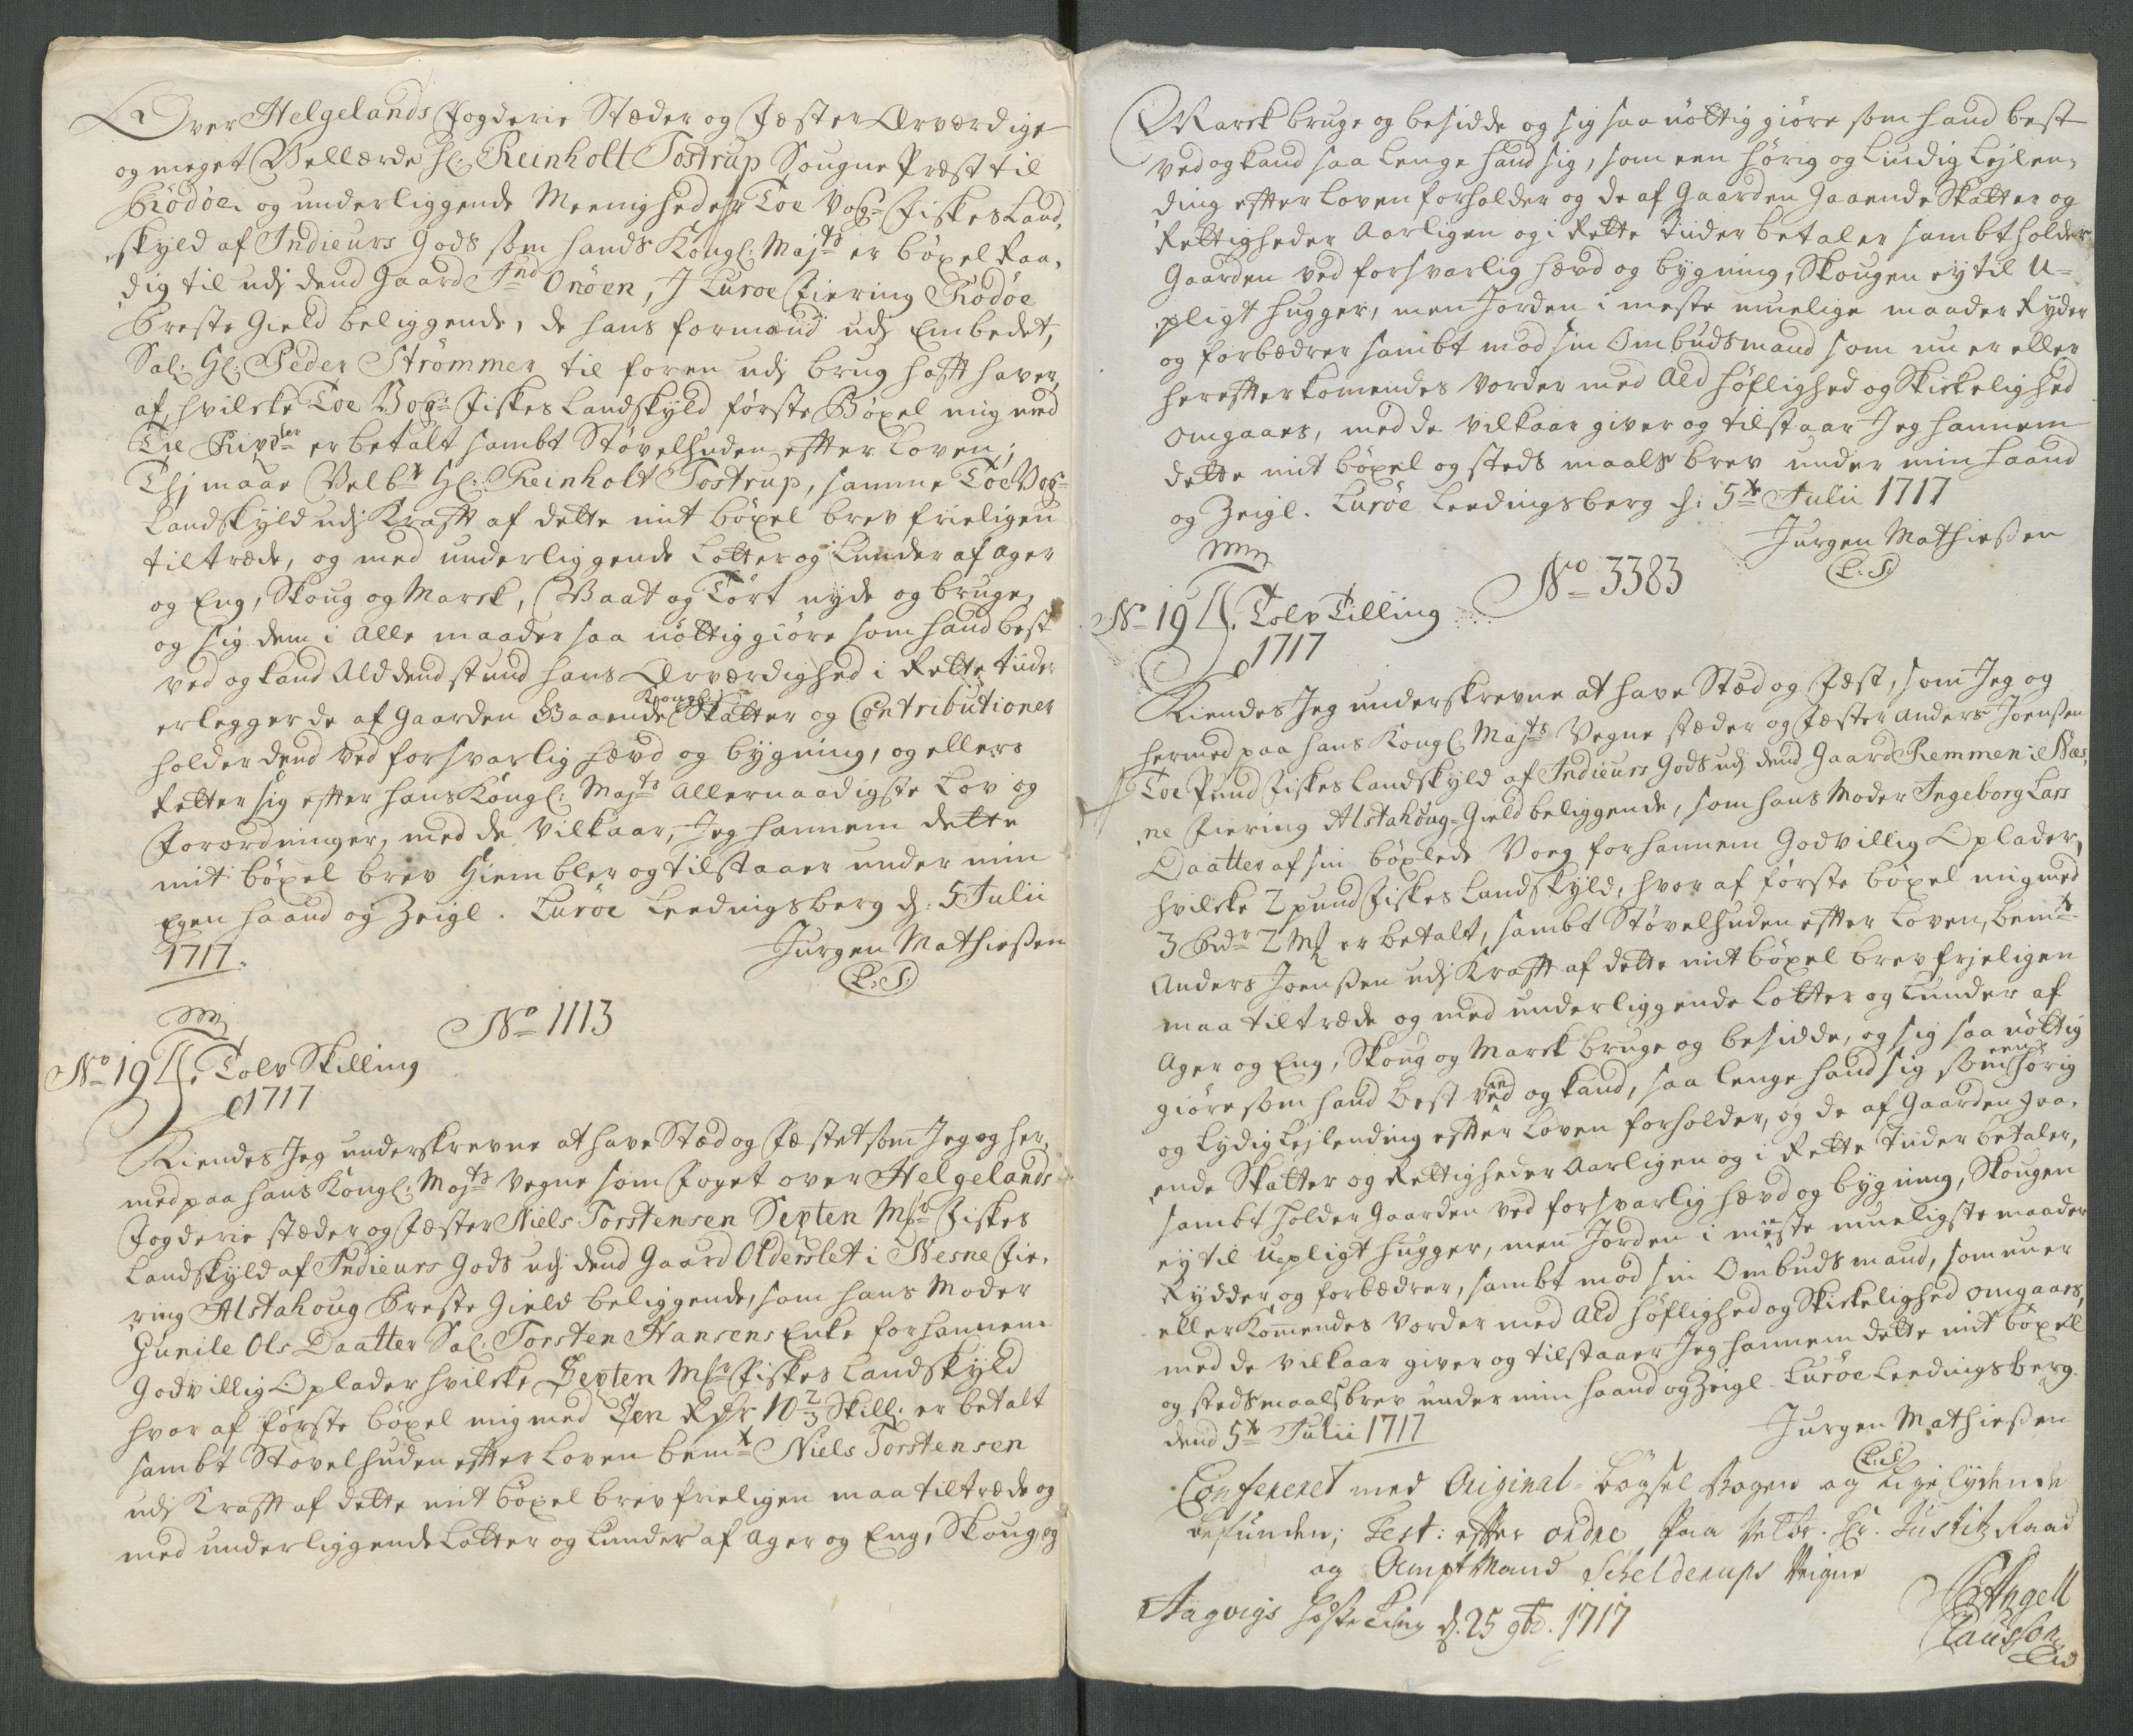 Over Helgelands Fogderie Stæder og Fæster Ærværdige
og meget Vellærde Hl: Reinholt Tostrup Sougne Præst til
Rödöe og underliggende Meenigheder Toe Vog= Fiskes Land,
,skyld af Indieurs Gods som hands Kongl: Majts er böxel Raa,
dig til udj dend Gaard Ind Onöen, J Luroe Fiering Rödöe
Preste Gield beliggende, de hans formænd udj Embedet,
Sal: Hl: Peder Strömmer til foren udj brug hafft haver,
af hvilcke Toe Vog: Fiskes Landskyld förste Böxel mig med
Tie Rixdler er betalt sambt Stövelhuden effter Loven;
Thj maae Velbte Hl: Reinholt Tostrup, samme Toe Vog=
Landskyld udj Krafft af dette mit böxel brev frieligen
tiltræde, og med underliggende Lotter og Lunder af ager
og Eng, Skoug og Marck, Vaat og Tört nyde og bruge,
og sig dem i Alle maader saa nöttig giöre som hand best
ved og kand Ald dend stund hans Ærværdighed i Rette tiider
erlegger de af Gaarden Gaaende Kongl: Skatter og Contributioner
holder dend ved forsvarlig hævd og bygning, og ellers
Retter sig effter hans Kongl: Majts Allernaadigste Lov og
Forordninger, med de Vilkaar, Jeg hannem dette
mit böxel brev Hiembler og tilstaaer under min
Egen haand og Zeigl. Luröe Leedingsberg d: 5 Julii
1717.
Jurgen Mathiessen
L.S.
No 1113
No 19 Tolv Skilling
1717
Kiendes Jeg underskrevne at have Stæd og Fæstet som Jeg og her,
med paa hans Kongl: Majts Vegne som Foget over Helgelands
Fogderie stæder og Fæster Niels Torstensen Septen Mkr Fiskes
Landskyld af Indieurs Gods udj dend Gaard Olderslet i Nesne Fie,
ring Alstahoug Preste Gield beliggende, som hans Moder
Gunile Ols Daatter Sal: Torsten Hansens Enke for hannem
Godvillig Oplader hvilcke Septen Mkr Fiskes Landskyld
hvor af förste böxel mig med Een Rdr 10 2/3 Skill: er betalt
sambt Stövelhuden effter Loven bemte Niels Torstensen
udj Krafft af dette mit böxel brev frieligen maa tiltræde og
med underliggende Lotter og Lunder af Ager og Eng, Skoug og
Marck bruge og besidde og sig saa nöttig giöre som hand best
ved og kand saa lenge hand sig, som een hörig og Lindig Lejlen,
ding effter Loven forholder og de af Gaarden Gaaende Skatter og
Rettigheder Aarligen og i Rette Tiider betaler sambt holder
Gaarden ved forsvarlig hævd og bygning, Skougen ey til U=
pligt hugger, men Jorden i meste muelige maader Ryder
og forbædrer sambt mod sin Ombudsmand som nu er eller
hereffter komendes Vorder med Ald höflighed og Skickelighed
Omgaaes, med de vilkaar giver og tilstaar Jeg hannem
dette mit böxel og steds maals brev under min haand
og Zeigl. Luröe Leedingsberg d: 5te Julii 1717
Jurgen Mathiessen
L.S.
No 3383
No 19 Tolv Skilling
1717
Kiendes Jeg underskrevne at have Stæd og Fæst, som Jeg og
hermed paa hans Kongl: Majts Vegne stæder og Fæster Anders Joenssen
Toe Pund Fiskes Landskyld af Indieurs Gods udj dend Gaard Remmen i Nes,
,ne Fiering Alstahoug=Gield beliggende, som hans Moder Ingeborg Lars
Daatter af sin böxlede Voeg for hannem Godvillig Oplader,
hvilcke 2 pund Fiskes Landskyld, hvor af förste böxel mig med
3 Rdr 2 Mk er betalt, sambt Stövelhuden effter Loven, bemte
Anders Joenssen udj Krafft af dette mit böxel brev frjeligen
maa tiltræde og med underliggende Lotter og Lunder af
Ager og Eng, Skoug og Marck bruge og besidde, og sig saa nöttig
giöre som hand best ved og kand, saa lenge hand sig som een hörig
og Lydig Lejlending effter Loven forholder, og de af Gaarden Gaa,
ende Skatter og Rettigheder Aarligen og i Rette Tiider betaler,
sambt holder Gaarden ved forsvarlig hævd og bygning, Skougen
ey til Upligt hugger, men Jorden i meste mueligste maader
Rydder og forbædrer, sambt mod sin Ombudsmand, som nu er
eller Kommendes Vorder med Ald höflighed og Skickelighed omgaaes,
med de vilkaar giver og tilstaaer Jeg hannem dette mit böxel
og stedsmaalsbrev under min haand og Zeigl Luröe Leedingsberg.
dend 5te Julii 1717
Jurgen Mathiessen
L.S.
Confereret med Original Bögsel Bogen og Ligelydende
befunden; Test: effter ordre paa Velbr. Hr. Justitz Raad
og Ampt Mand Schelderups Veigne
Aagvigs Höste Ting d. 25 9br. 1717
Angell
Clausson